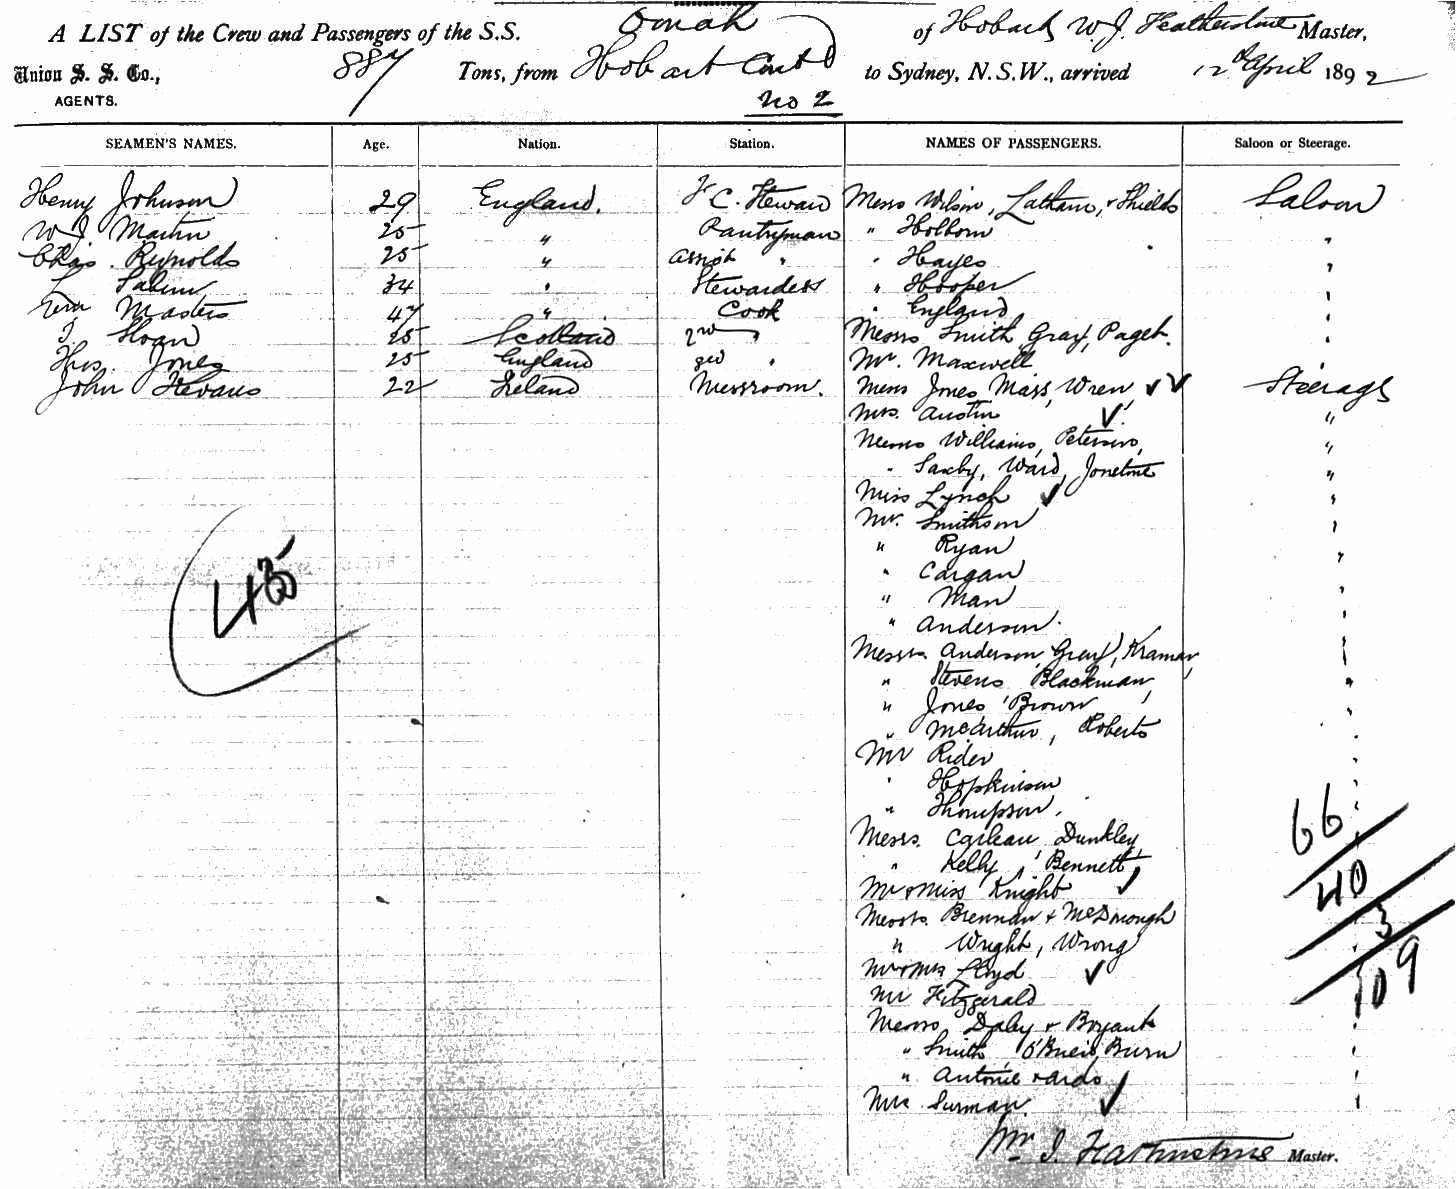 A LIST of the Crew and Passengers of the S.S. Oonah of Hobart W. J. Featherstone Master,
Union S. S. Co., 887 Tons, from Hobart Contd to Sydney, N.S.W., arrived 12th April 1892
AGENTS. No 2
SEAMEN'S NAMES. Age. Nation. Station. NAMES OF PASSENGERS. Saloon or Steerage.
Henry Johnson 29 England. F C. Steward Messrs Wilson, Latham, & Shields Saloon
W J Martin 25 " Pantryman " Holborn "
Chas. Reynolds 25 " Assist " " Hayes "
L Salier 34 " Stewardess " Hooper "
Wm Masters 47 " Cook " England "
T Sloan 25 Scotland 2nd " Messrs Smith Gray, Paget. "
Thos. Jones 25 England 3rd " Mr. Maxwell "
John Stevens 22 Ireland Messroom. Messrs Jones, Mass, Wren Steerage
Mrs. Austin "
Messrs Williams, Peterson, "
" Saxby, Ward, "
Miss Lynch "
Mr. Smithson "
" Ryan "
" Cargan "
" Man "
" Anderson. "
Messrs. Anderson, Gray, Kramar, "
" Stevens, Blackman, "
" Jones, Brown, "
" McArthur, Roberts "
Mr Rider "
" Hopkinson "
" Thompson. "
Messrs. Carleau, Dunkley, "
" Kelly, Bennett "
Mr & Miss Knight
Messrs. Brennan & McDonough
" Wright, Wrong "
Mr & Mrs Lloyd
Mr Fitzgerald
Messrs Daley & Bryant "
" Smith, O'Brien, Burn "
" Antonie & "
Mrs Surman. "
435
66
40
3
109
Wm J. Featherstone Master.